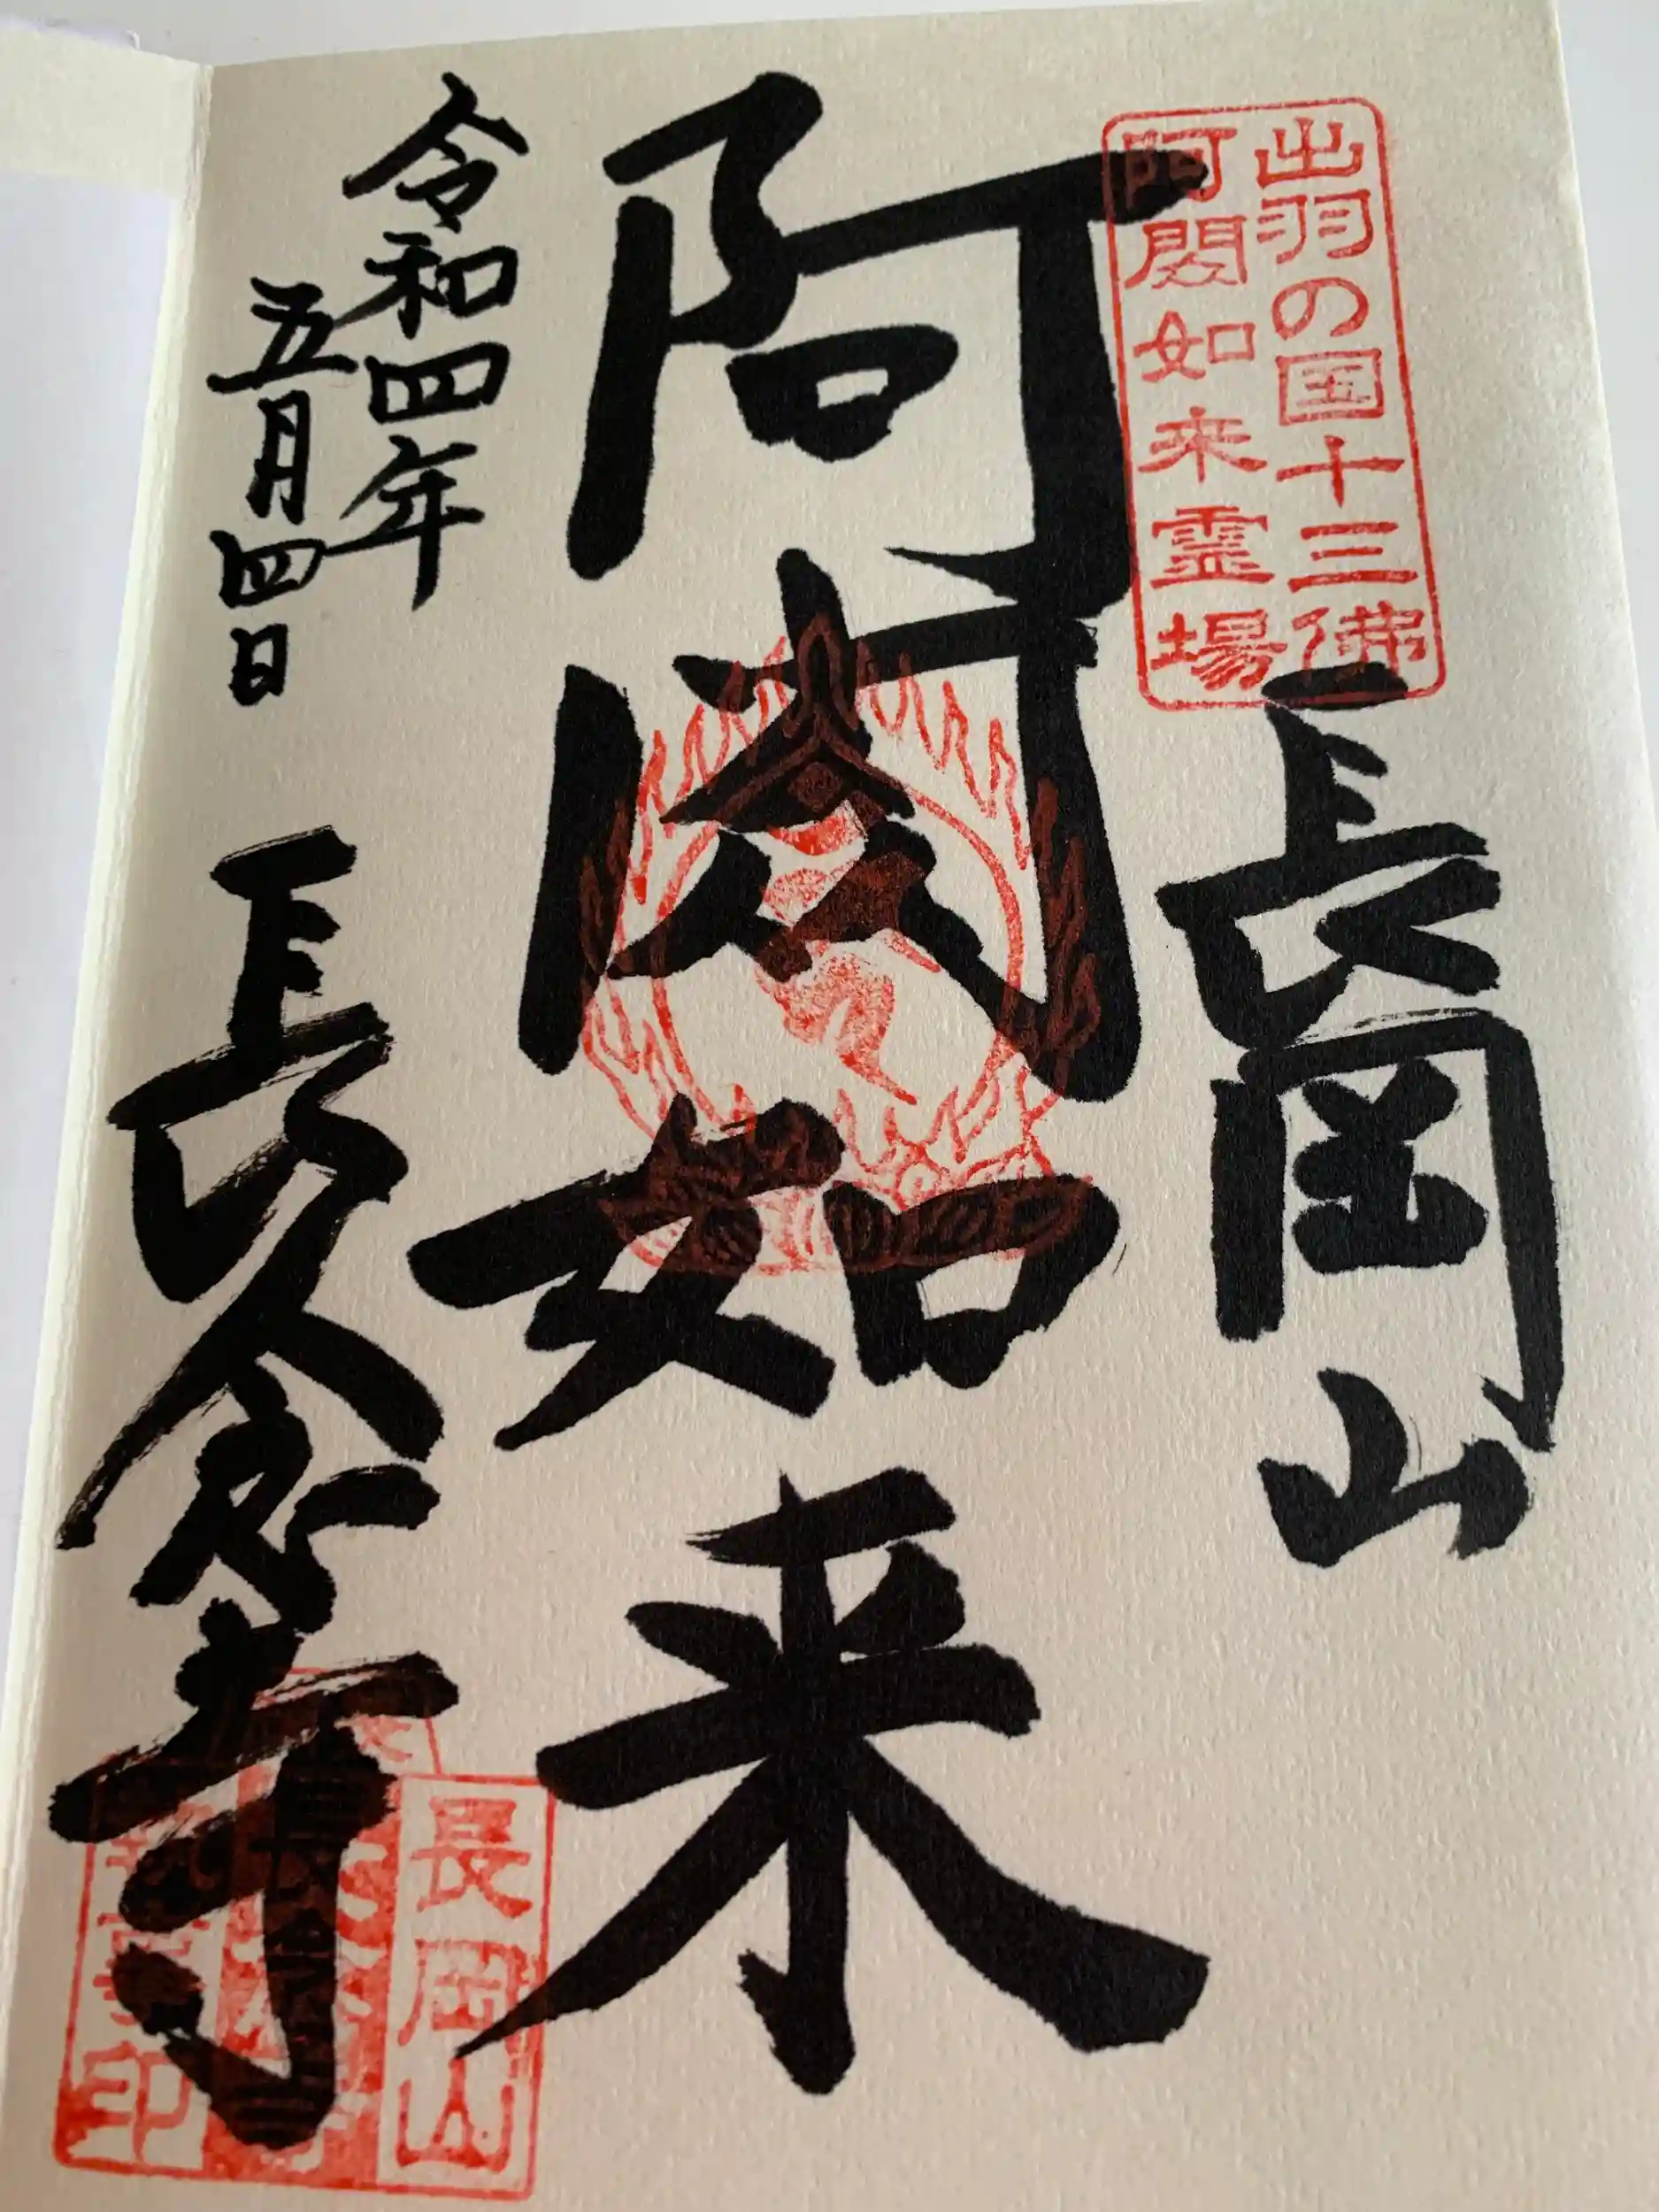 出羽の国十三佛
阿閦如来霊場
長岡山
阿閦如来
令和四年
五月四日
長念寺
長岡山
長念寺
印